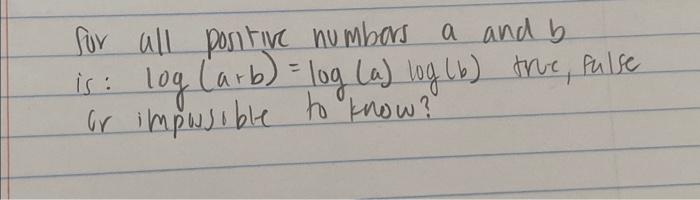 for all positive numbers a and b
is: log(a+b) = log(a) log(b) true, false
or impossible to know?